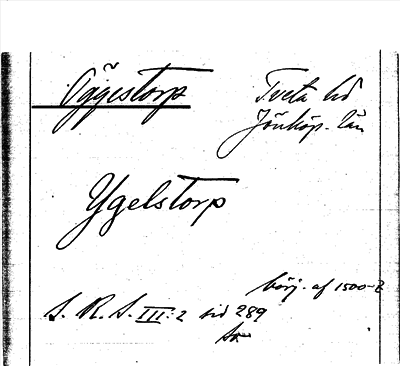 Öggestorp Tveta hd
Jönköp. län
Ygelstorp
börj. af 1500-t
S. R. S. III:2 sid 289